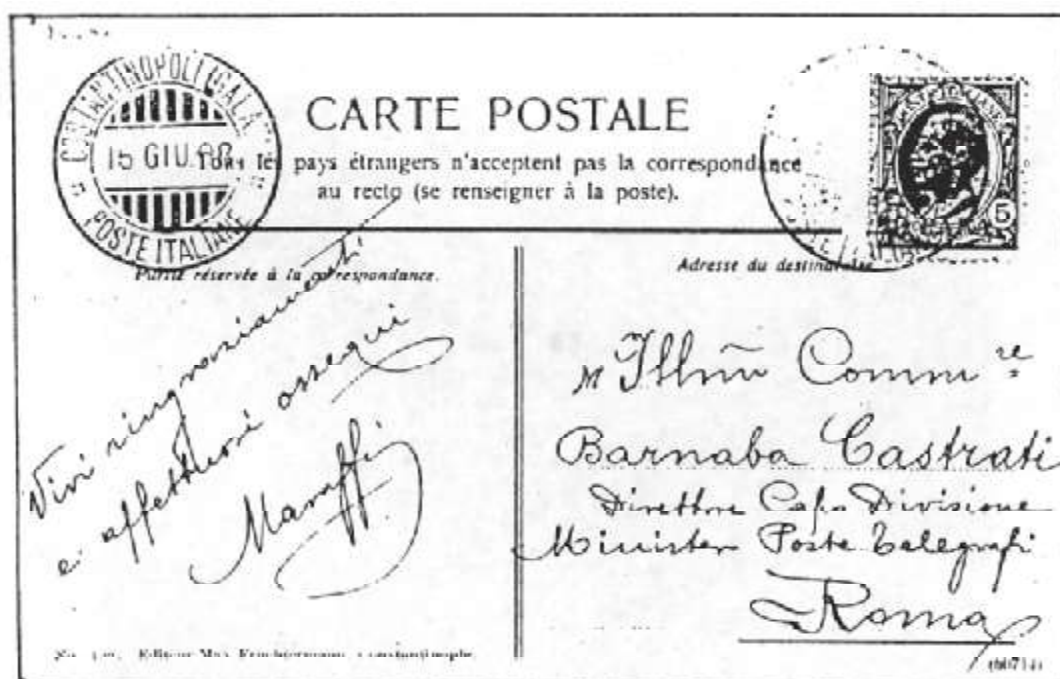 COSTANTINOPOLI GALATA
15 GIU.
POSTE ITALIANE
CARTE POSTALE
Tous les pays étrangers n'acceptent pas la correspondance
au recto (se renseigner à la poste).
POSTE ITALIANE
5
Partie réservée à la correspondance.
Vivi ringraziamenti
e affettuosi ossequi
Maraffi
Adresse du destinataire
Illmũ Comm.re
Barnaba Castrati
Direttore Capo Divisione
Ministero Poste Telegrafi
Roma
Editeur Max Fruchtermann, Constantinople.